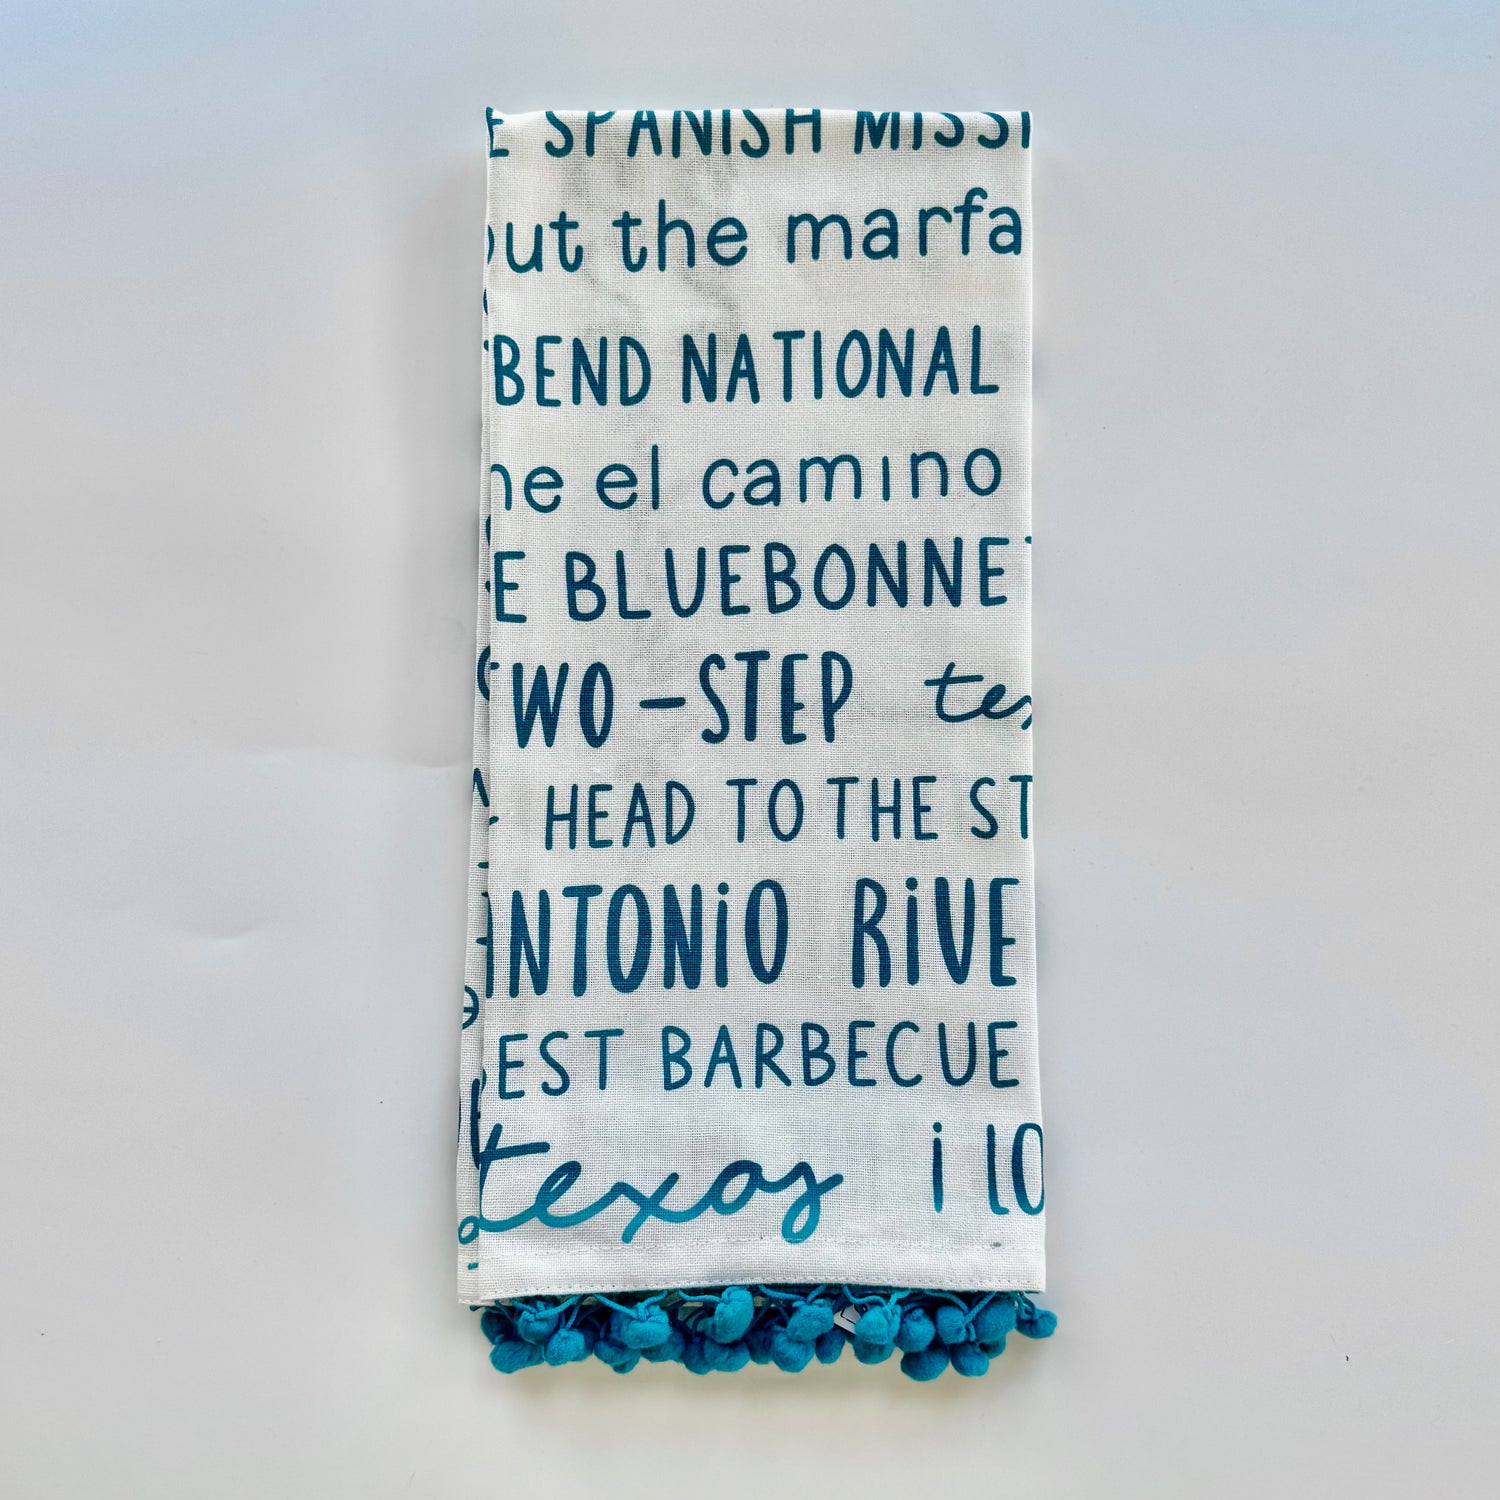 E SPANISH MISSI
out the marfa
BEND NATIONAL
he el camino
E BLUEBONNET
TWO-STEP tex
HEAD TO THE ST
ANTONIO RIVE
BEST BARBECUE
texas i lo